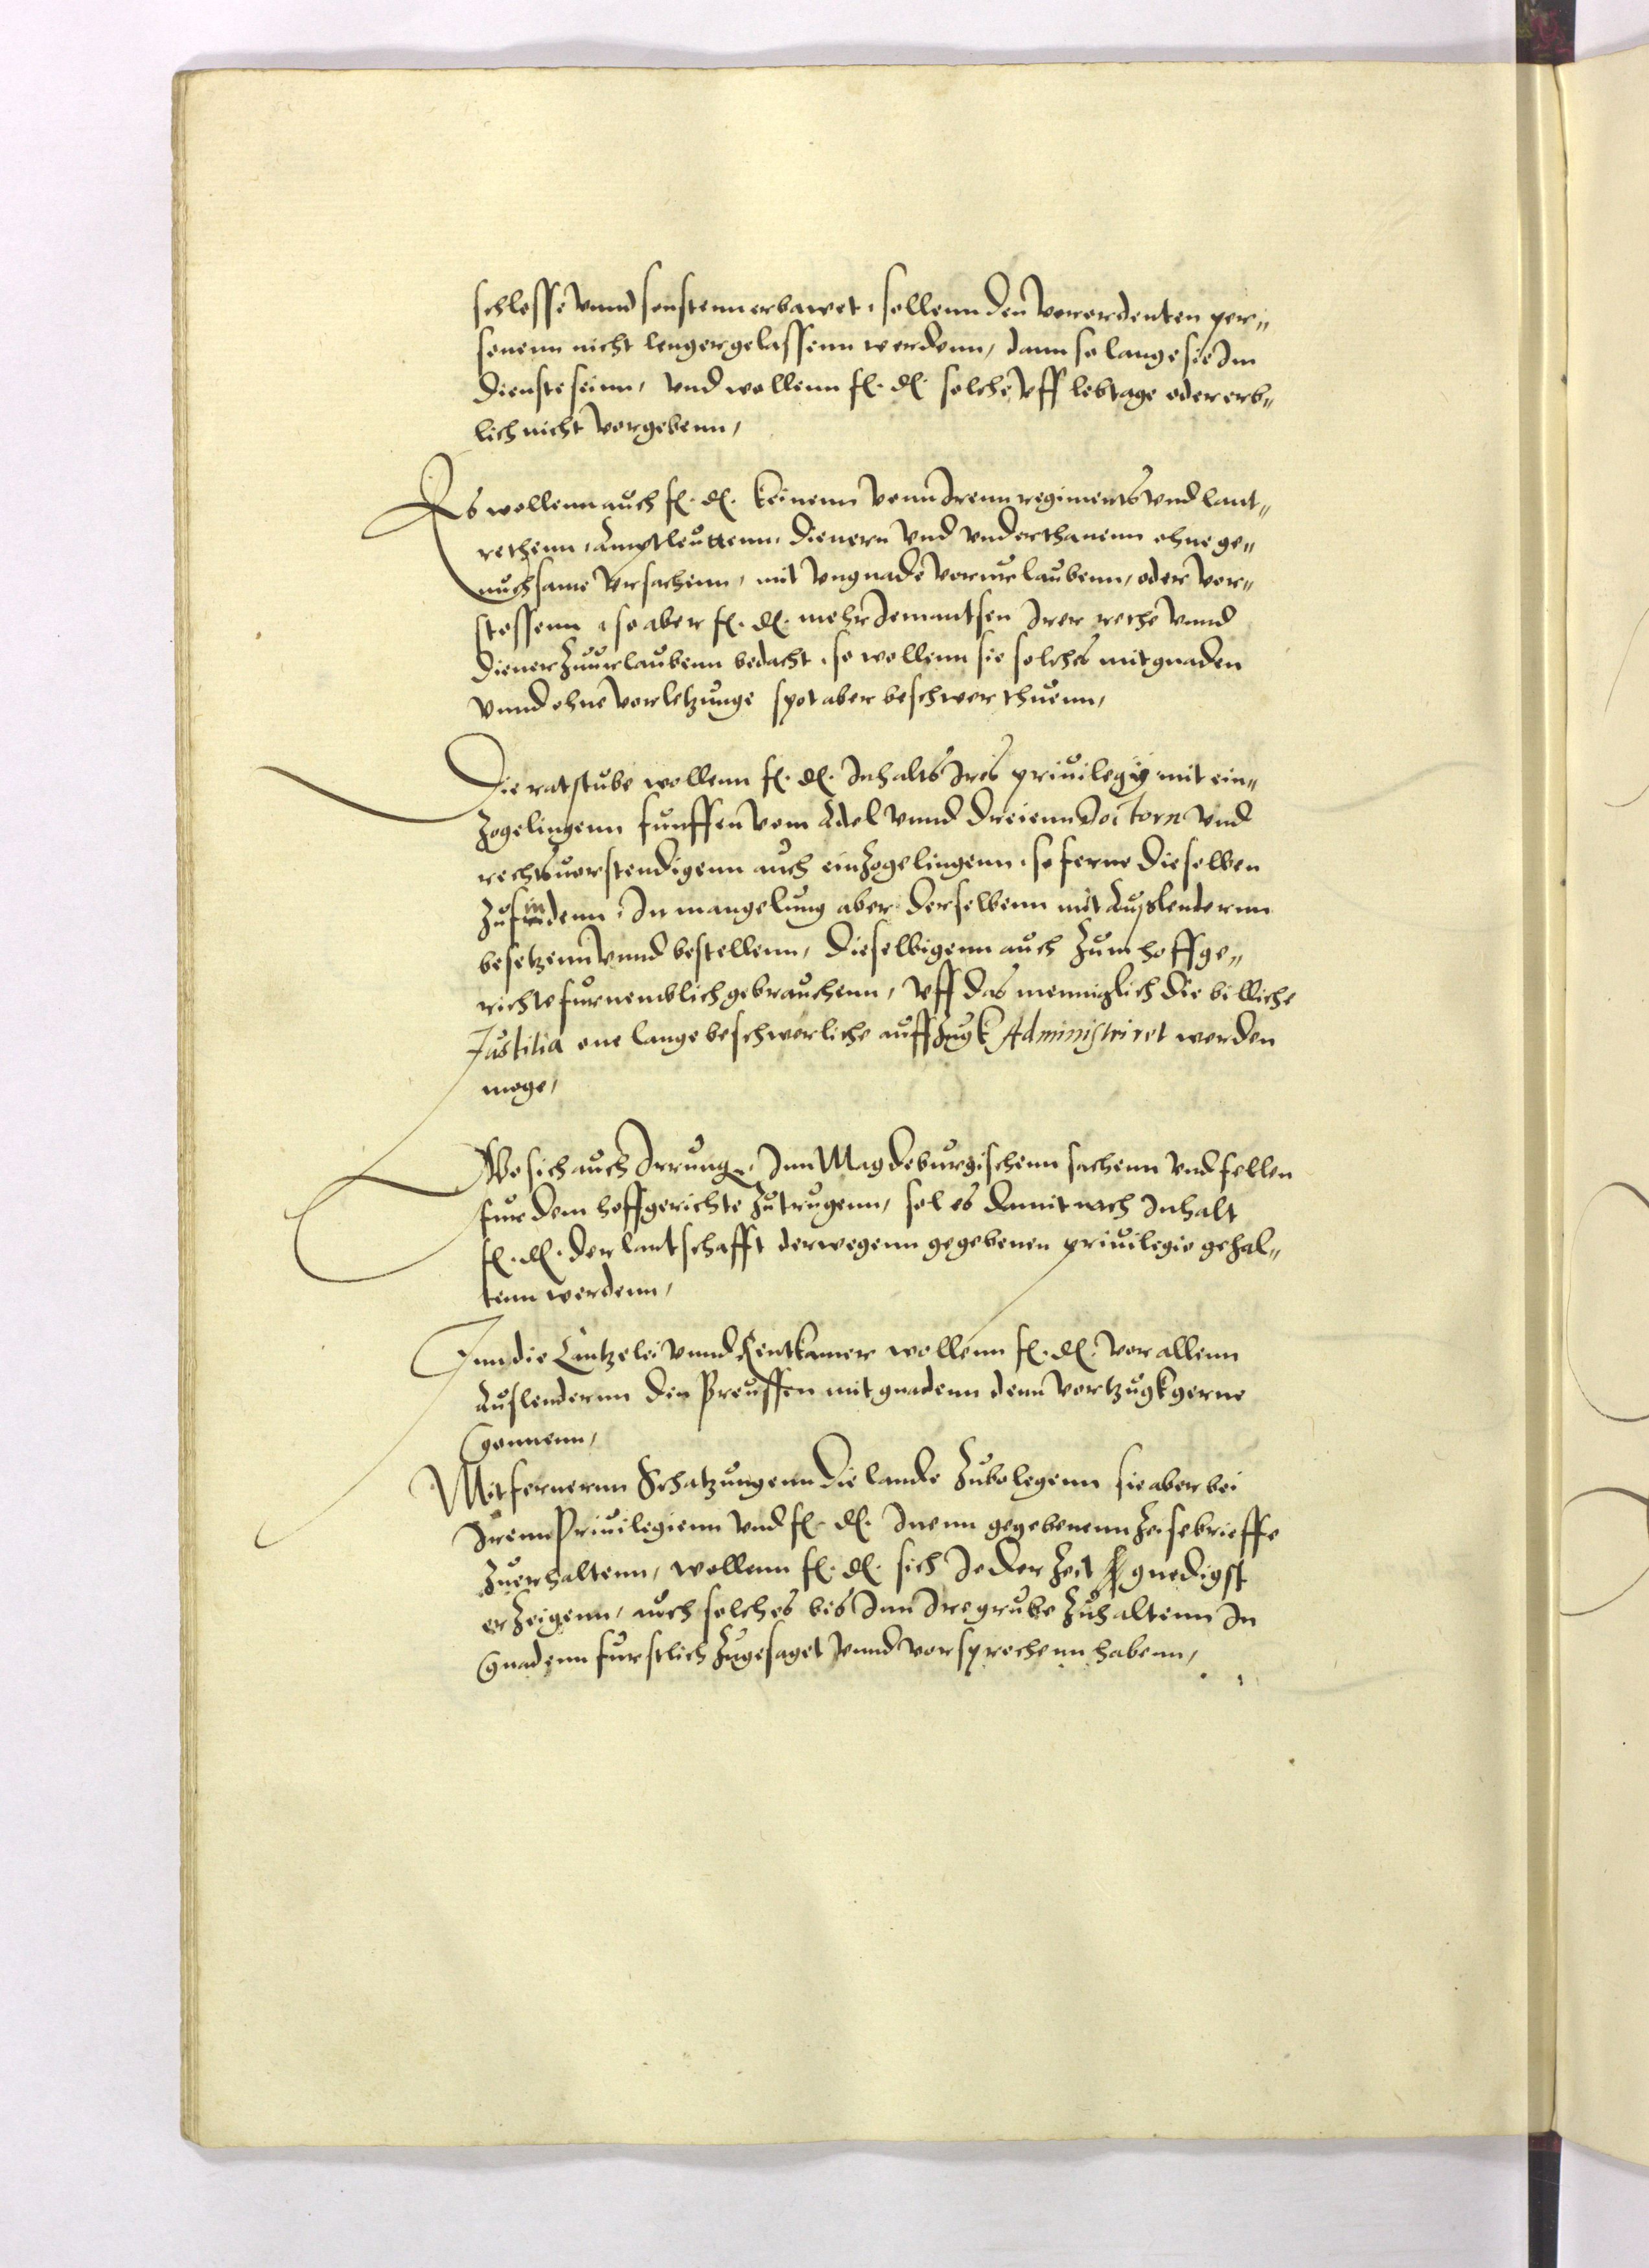 schlosse vnnd sonstenn erbawet, sollenn den verordenten per„
sonenn nicht lenger gelassenn werdenn, dann so lange sie Im
dienste seinn, vnd wollenn f. d. solche vff lebtage oder erb„
lich nicht vorgebenn,
Es wollenn auch f. d. keinenn vonn Irenn regiments vnd lant„
rethenn, Amptleuttenn, dienern vnd vnderthanenn ohne ge„
nuchsame vrsachenn, mit vngnade vorurlaubenn, oder vor„
stossenn, so aber f. d. mehr Jemantsen Irer rethe vnnd
diener zuuurlaubenn bedacht, so wollenn sie solches mit gnaden
vnnd ohne vorletzunge spot aber beschwer thuenn,
Die ratstube wollenn f. d. Inhalts Ires priuilegij mit ein„
zogelingenn funffen vom Adel vnnd dreienn Doctorn vnd
rechtsuorstendigenn auch einzogelingenn, so ferne dieselben
zufindenn, In mangelung aber derselbenn mit Auslendernn
besetzenn vnnd bestellenn, dieselbigenn auch zum hoffge„
richte furnemblich gebrauchenn, vff das menniglich die billiche
Justitia one lange beschwerliche auffzugk Administriret werden
moge,
Wo sich auch Irrung, Inn Magdeburgischenn sachenn vnd fellen
fur dem hoffgerichte zutrugenn, sol es damit nach Inhalt
f. d. der lantschafft derwegenn gegebenen priuilegio gehal„
tenn werdenn,
Inn die Cantzelei vnnd Rentkamer wollenn f. d. vor allenn
Auslendernn den Preussen mit gnadenn denn vortzugk gerne
gonnenn,
Mit fernernn Schatzungenn die lande zubelegenn sie aber bei
Irenn Priuilegienn vnd f. d. Inenn gegebenenn Zeisebrieffe
zuerhaltenn, wollenn f. d. sich Jeder Zeit gnedigst
erzeigenn, auch solches bis Inn Ire grube zuhaltenn In
gnadenn furstlich zugesaget vnnd vorsprochenn habenn,